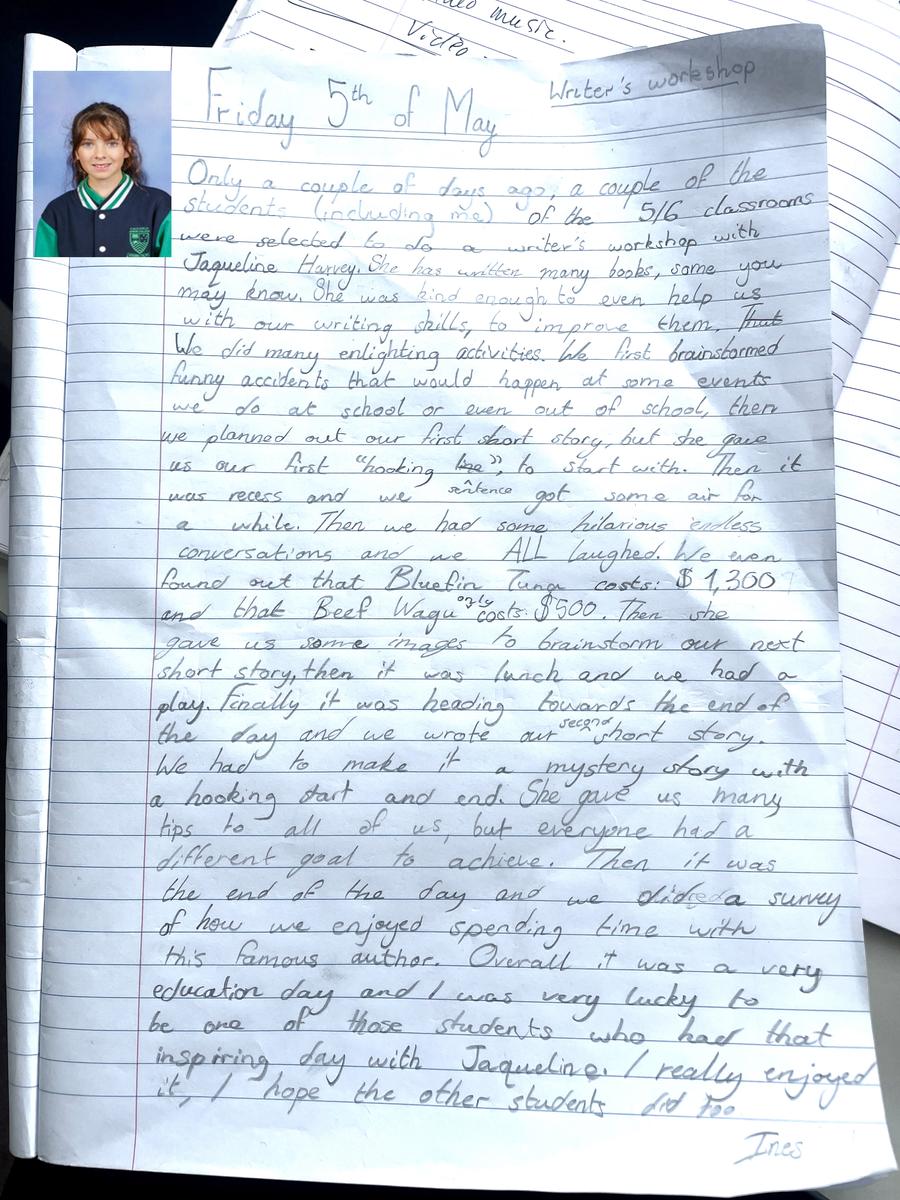 deo music.
Video
Writer's workshop
Friday 5th of May
Only a couple of days ago, a couple of the
students (including me) of the 5/6 classrooms
were selected to do a writer's workshop with
Jaqueline Harvey. She has written many books, some you
may know. She was kind enough to even help us
with our writing skills, to improve them. That
We did many enlighting activities. We first brainstormed
funny accidents that would happen at some events
we do at school or even out of school, then
we planned out our first short story, but she gave
us our first "hooking line", to start with. Then it
was recess and we sentence got some air for
a while. Then we had some hilarious endless
conversations and we ALL laughed. We even
found out that Bluefin Tuna costs: $1,300
and that Beef Wagu only costs: $500. Then she
gave us some images to brainstorm our next
short story, then it was lunch and we had a
play. Finally it was heading towards the end of
the day and we wrote our second short story.
We had to make it a mystery story with
a hooking start and end. She gave us many
tips to all of us, but everyone had a
different goal to achieve. Then it was
the end of the day and we did a survey
of how we enjoyed spending time with
this famous author. Overall it was a very
education day and I was very lucky to
be one of those students who had that
inspiring day with Jaqueline. I really enjoyed
it, I hope the other students did too
Ines